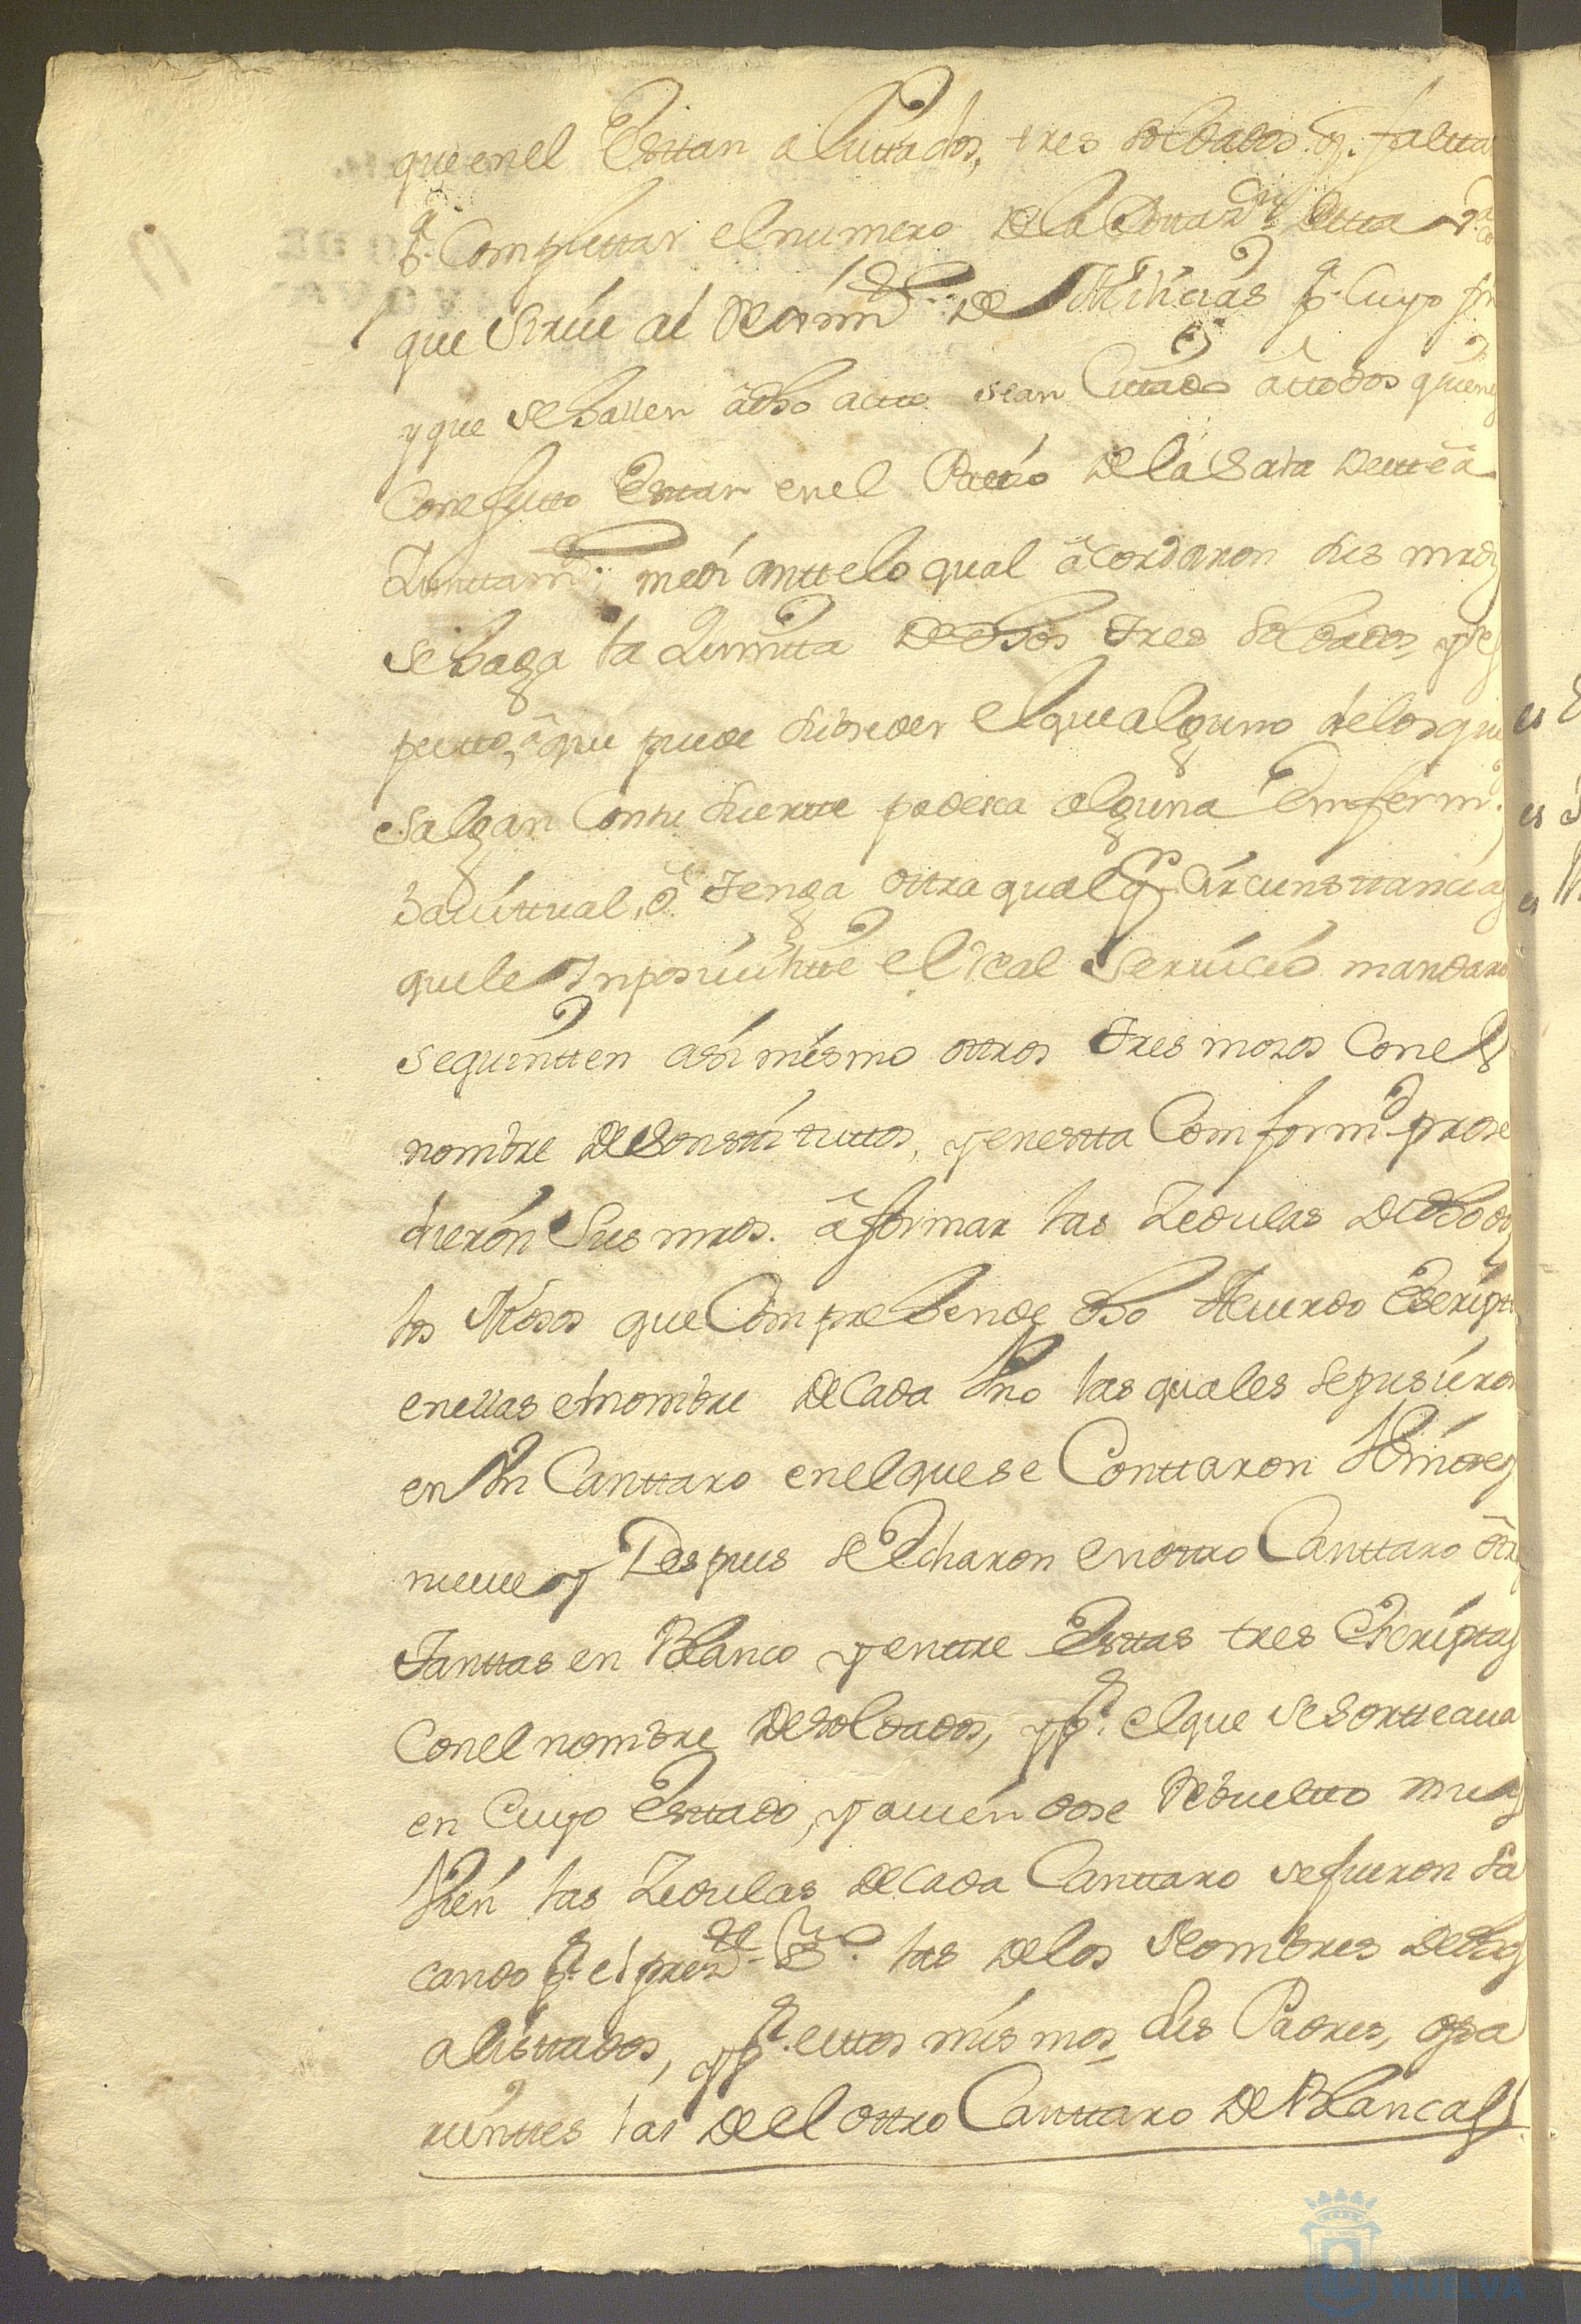 que en el Esttan alisttados, tres soldados q. faltta
p.ª Complettar el numero de la de esta v.ª Con
que sirve al Reximto. de Milicias p.ª Cuyo fin
y que se hallen â dho actto sean Cittado â ttodos quienes
Con efectto Esttan en el Pattio de la Sala de este a
Iunttamto. mediantte lo qual âcordaron sus mrds
se haga la Quintta de dhos tres soldados, y res
pectto, â que puede subseder el que alguno de los que
salgan Con su suertte padesca alguna Emfermd.
havittual, ô tenga ottra qualqr. Circunsttancia
que le Inposivilitte el Real Servicio mandaro
se quintten asi mismo ottros tres mosos Con el
nombre de Sonstitutos, y en estta Comformd. prose
dieron Sus mrds. â formar las Zedulas de dhodos
los Mosos que Comprehende dho Acuerdo Escriptto
en ellas el nombre de Cada Vno las quales se pusieron
en Vn Canttaro en el que se Conttaron
nueve y Despues se Echaron en ottro Canttaro ôtr
Tanttas en Blanco y enttre Esttas tres Escriptas
Con el nombre de soldados, y p.r el que se sortteava
en Cuyo Esttado, y aviendose Rebueltto muy
Vien las Zedulas de cada Canttaro se fueron sa
cando p.r el presте. Es.no las de los Nombres de los
alisttados, y p.r esttos mismos, sus Padres, o pa
rienttes las de el ottro Canttaro de Blancas
Ayuntamiento de
HUELVA